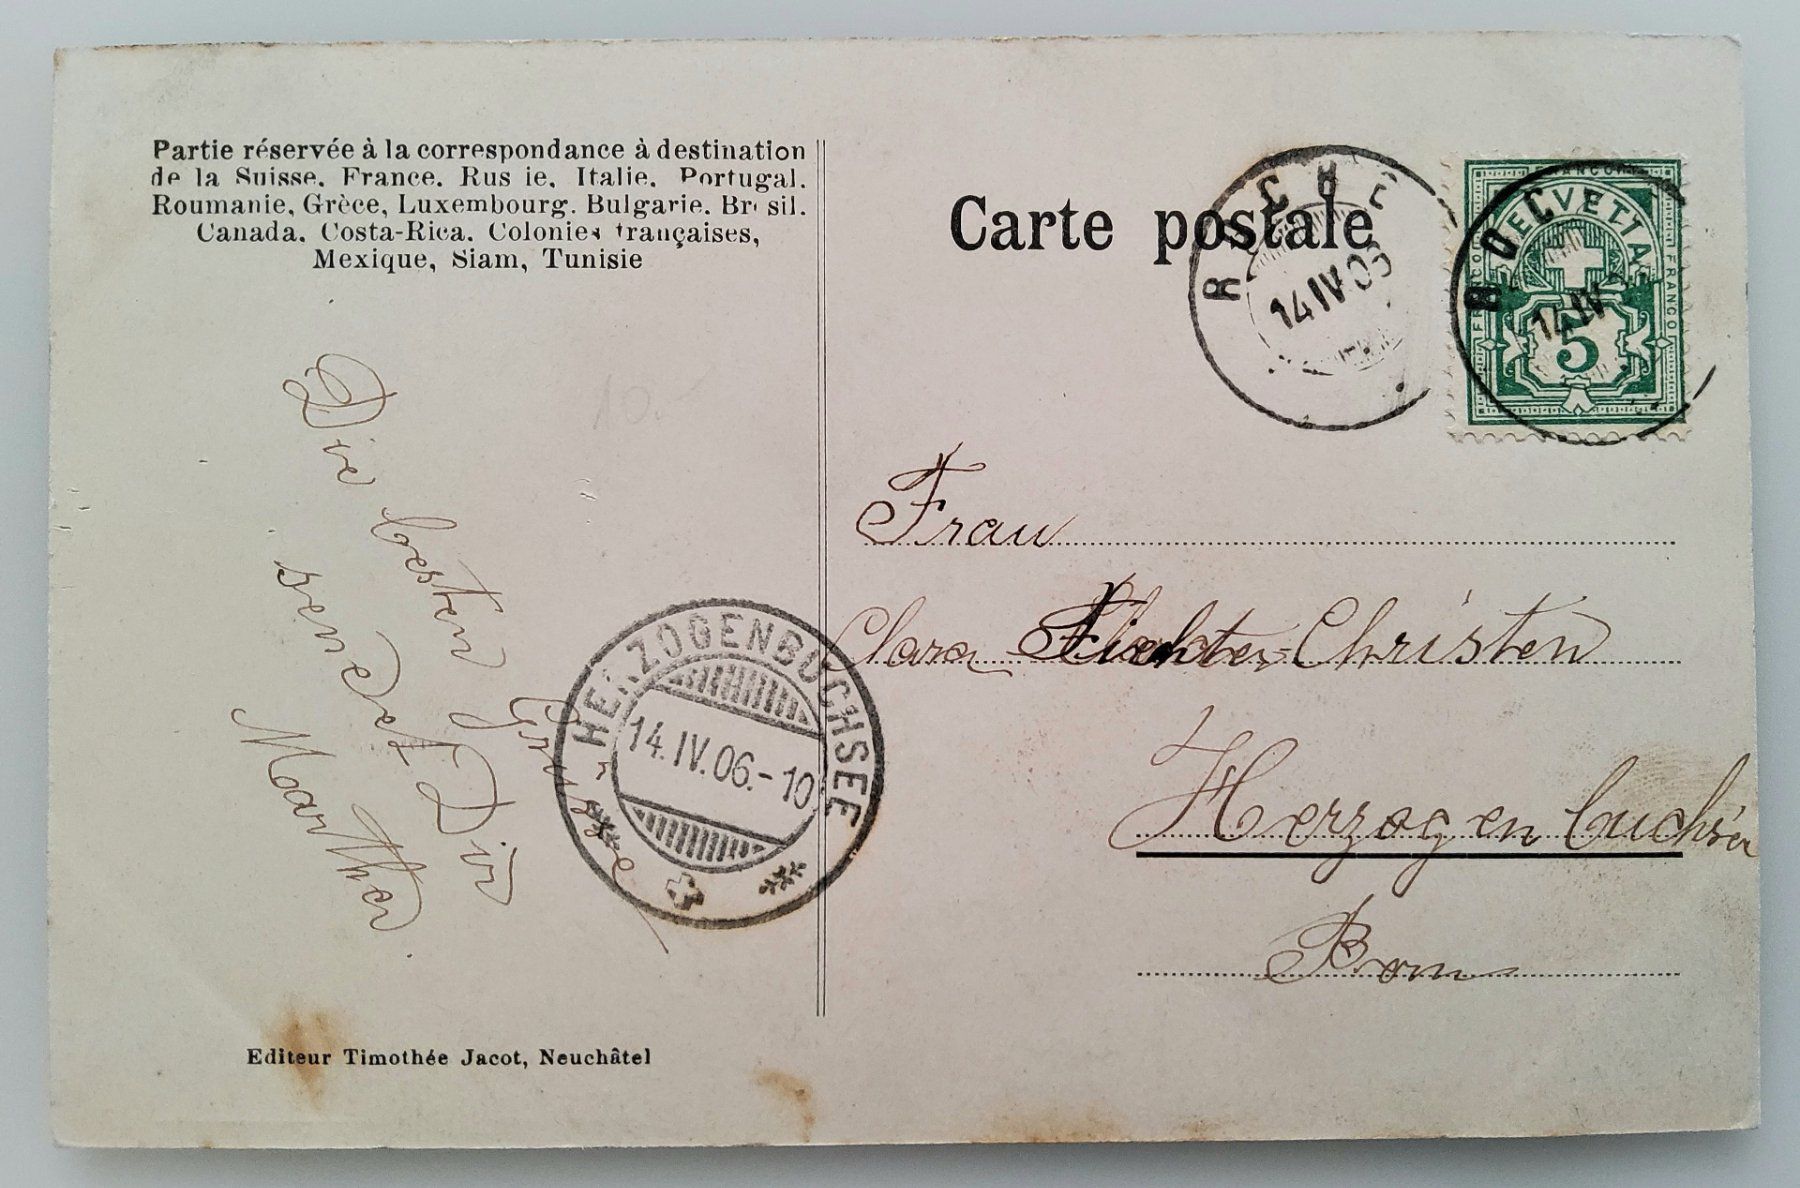 Partie réservée à la correspondance à destination
de la Suisse. France. Rus ie. Italie. Portugal.
Roumanie, Grèce, Luxembourg. Bulgarie. Br sil.
Canada. Costa-Rica. Colonies françaises,
Mexique, Siam, Tunisie
Carte postale
14 IV 06
HELVETIA
FRANCO
FRANCO
5
14 IV
10.-
Die besten Grüsse
sendet Dir
Marthe
HERZOGENBUCHSEE
14.IV.06.-10
Frau
Clara Christen
Herzogenbuchsee
Bern
Editeur Timothée Jacot, Neuchâtel